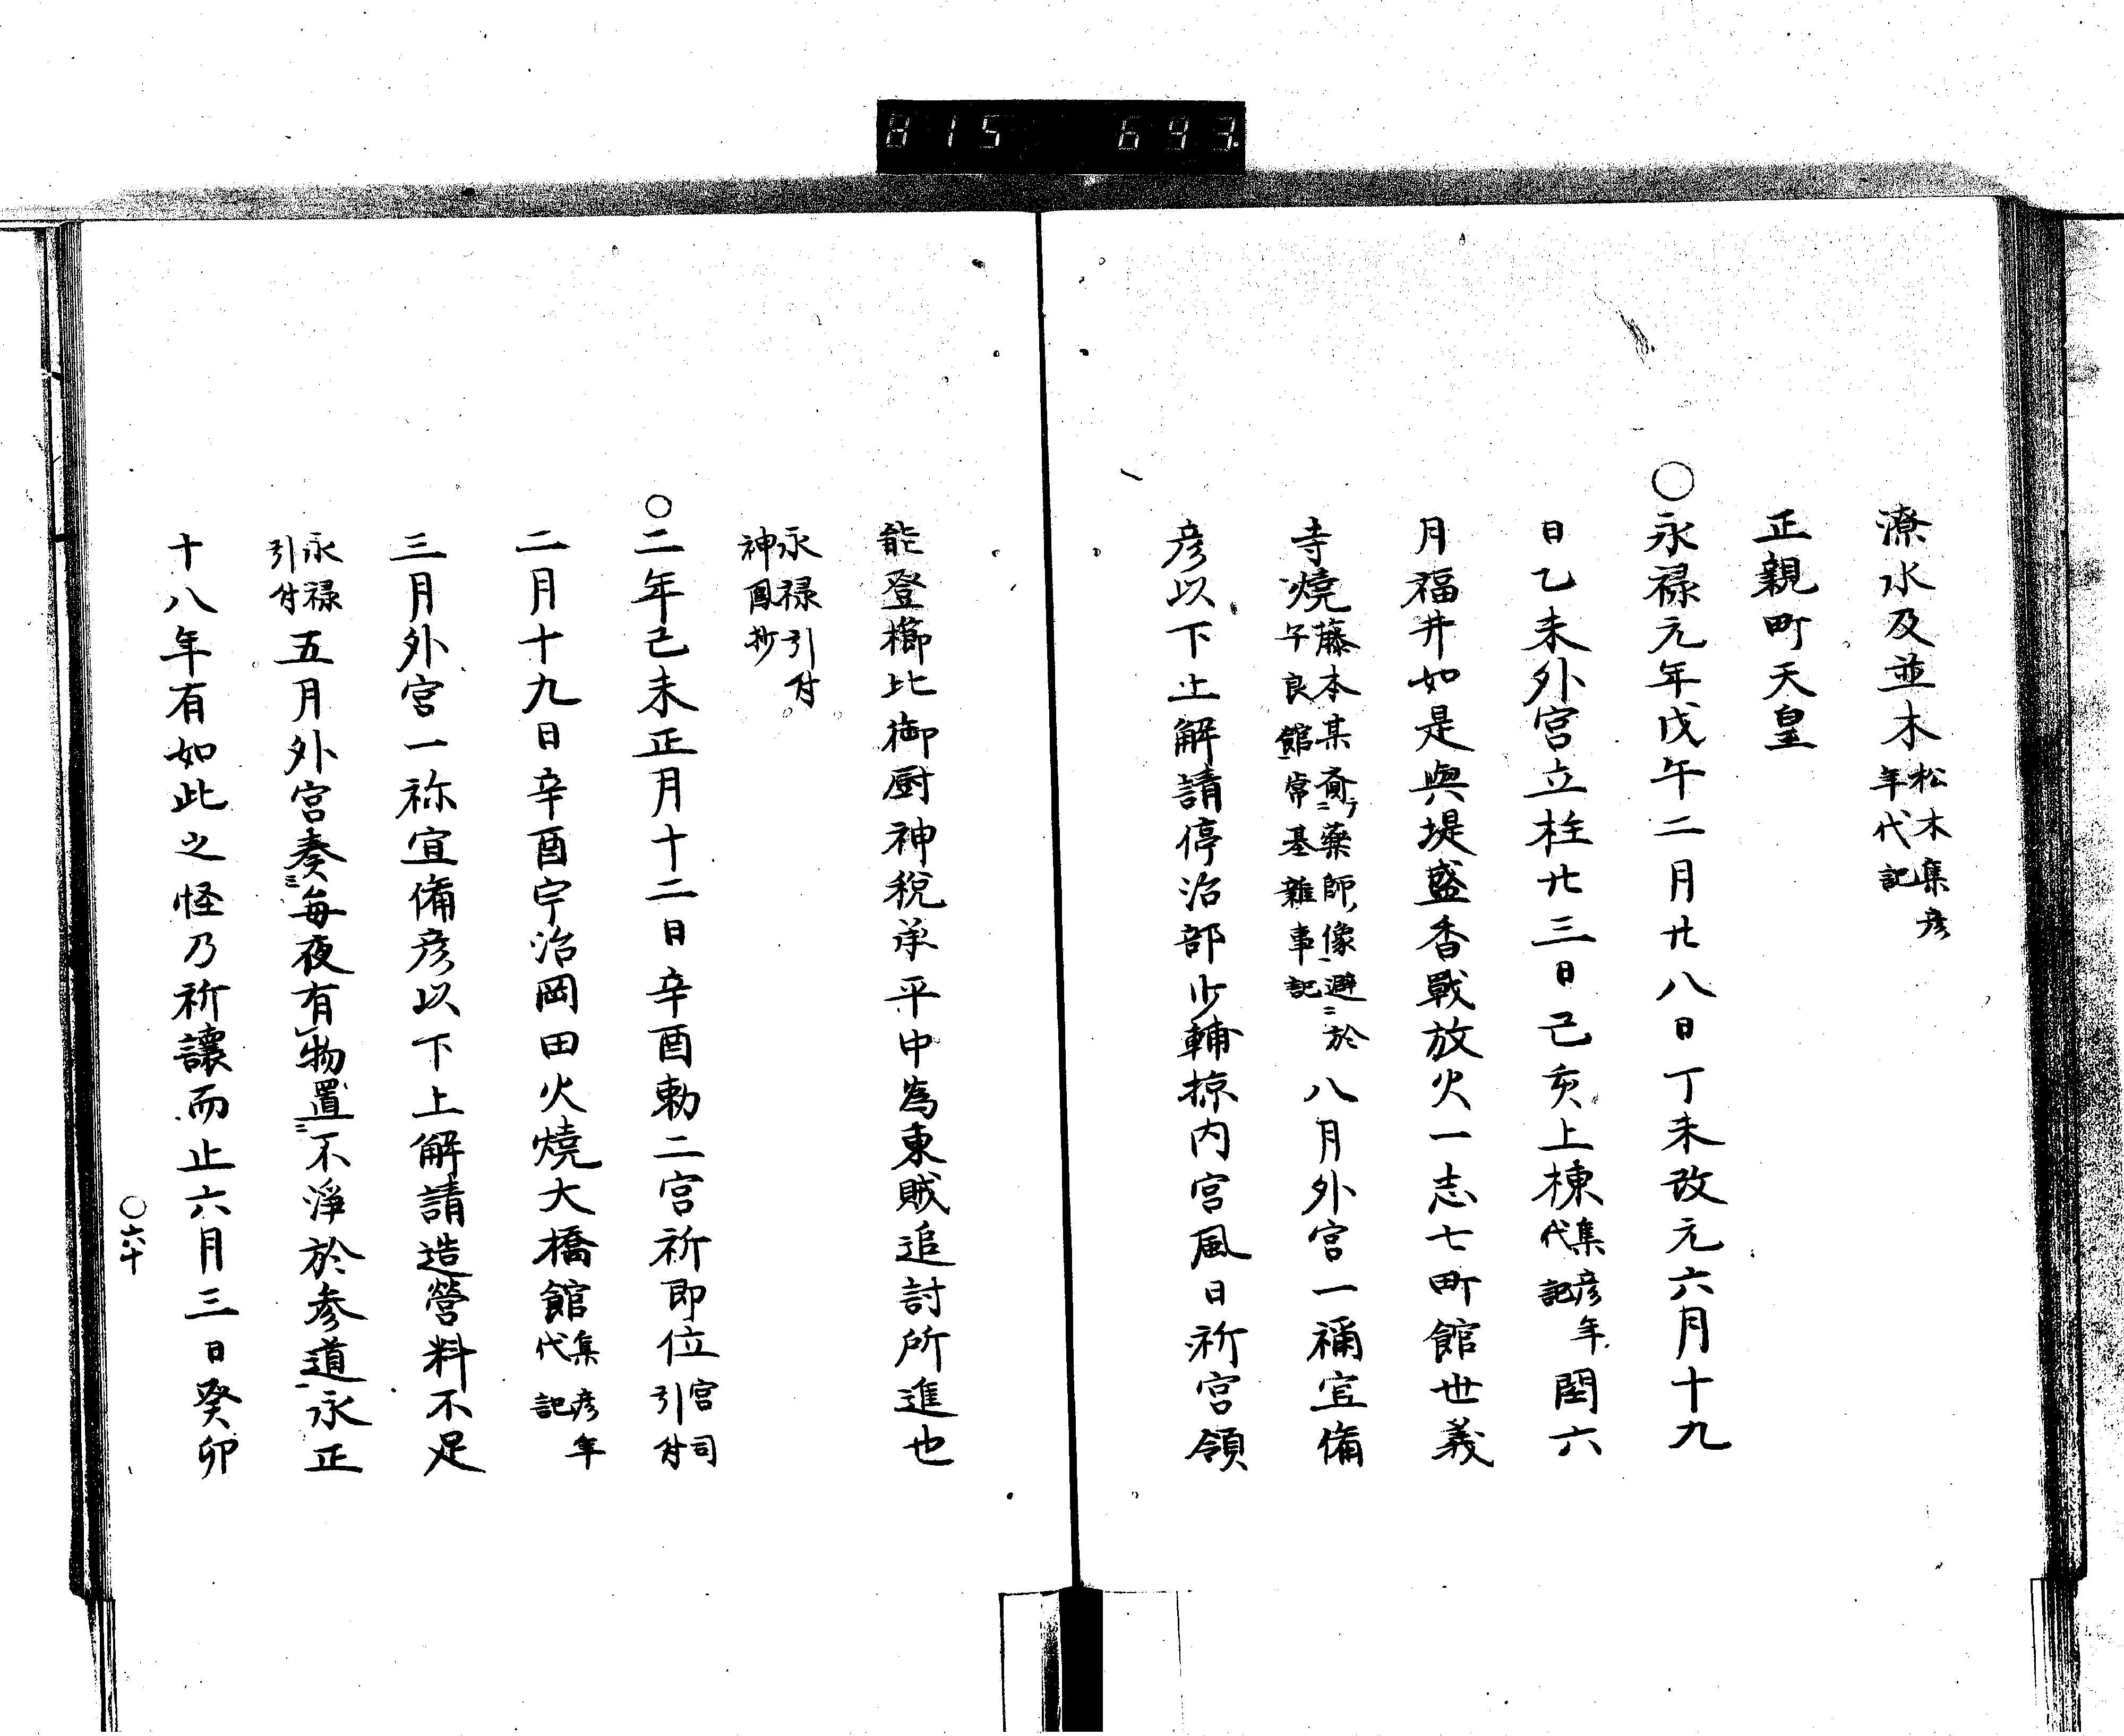 815 693
潦水及並木松木集彦
年代記
正親町天皇
○永禄元年戊午二月廿八日丁未改元六月十九
日乙未外宮立柱廿三日己亥上棟集彦年
代記閏六
月福井如是與堤盛香戰放火一志七町館世義
寺燒藤本某齎薬師像避於
子良館常基雜事記八月外宮一禰宜備
彦以下上解請停治部少輔掠内宮風日祈宮領
能登櫛比御厨神税承平中為東賊追討所進也
永禄引付
神鳳抄
○二年己未正月十二日辛酉勅二宮祈即位宮司
引付
二月十九日辛酉宇治岡田火燒大橋館集彦年
代記
三月外宮一祢宜備彦以下上解請造營料不足
永禄
引付五月外宮奏ニ毎夜有物置ニ不淨於參道永正
十八年有如此之怪乃祈讓而止六月三日癸卯
○六十